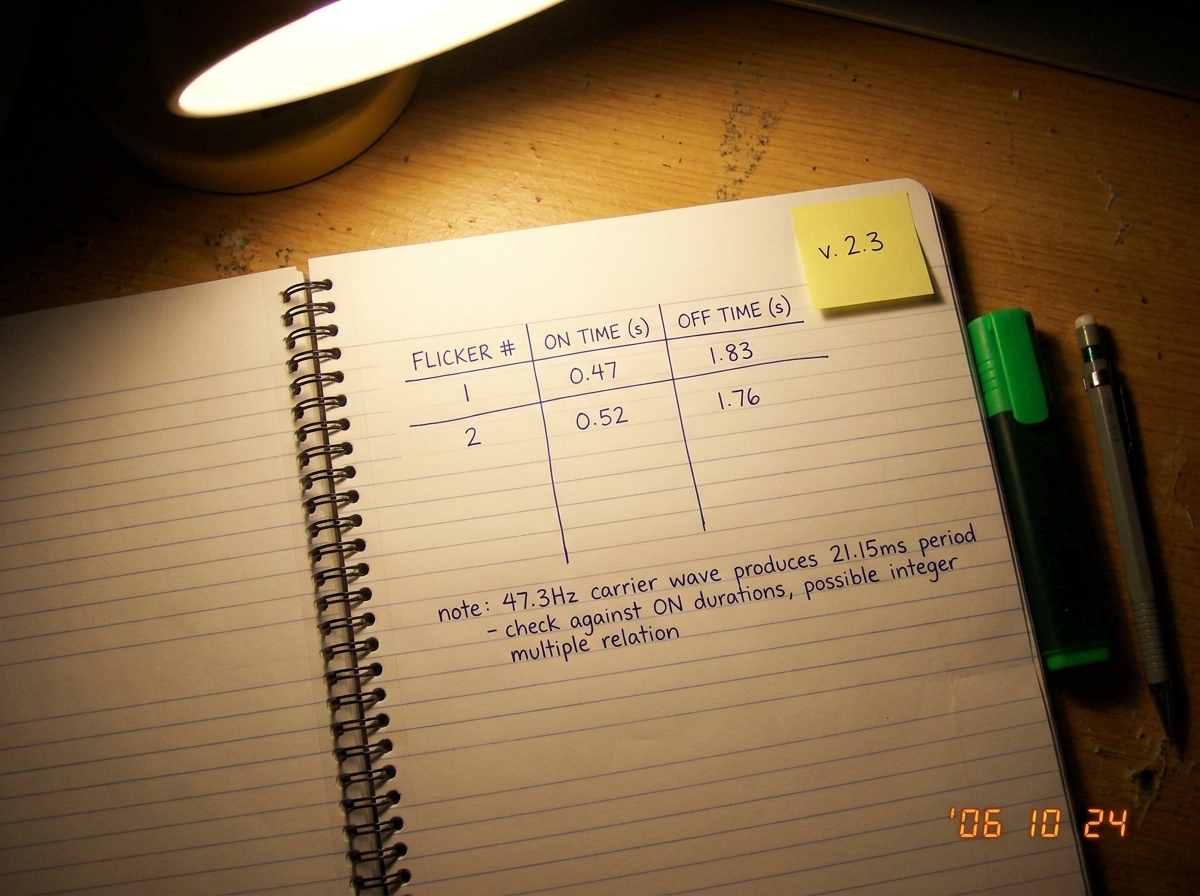 v. 2.3
FLICKER # ON TIME (s) OFF TIME (s)
1 0.47 1.83
2 0.52 1.76
note: 47.3Hz carrier wave produces 21.15ms period
- check against ON durations, possible integer
multiple relation
'06 10 24